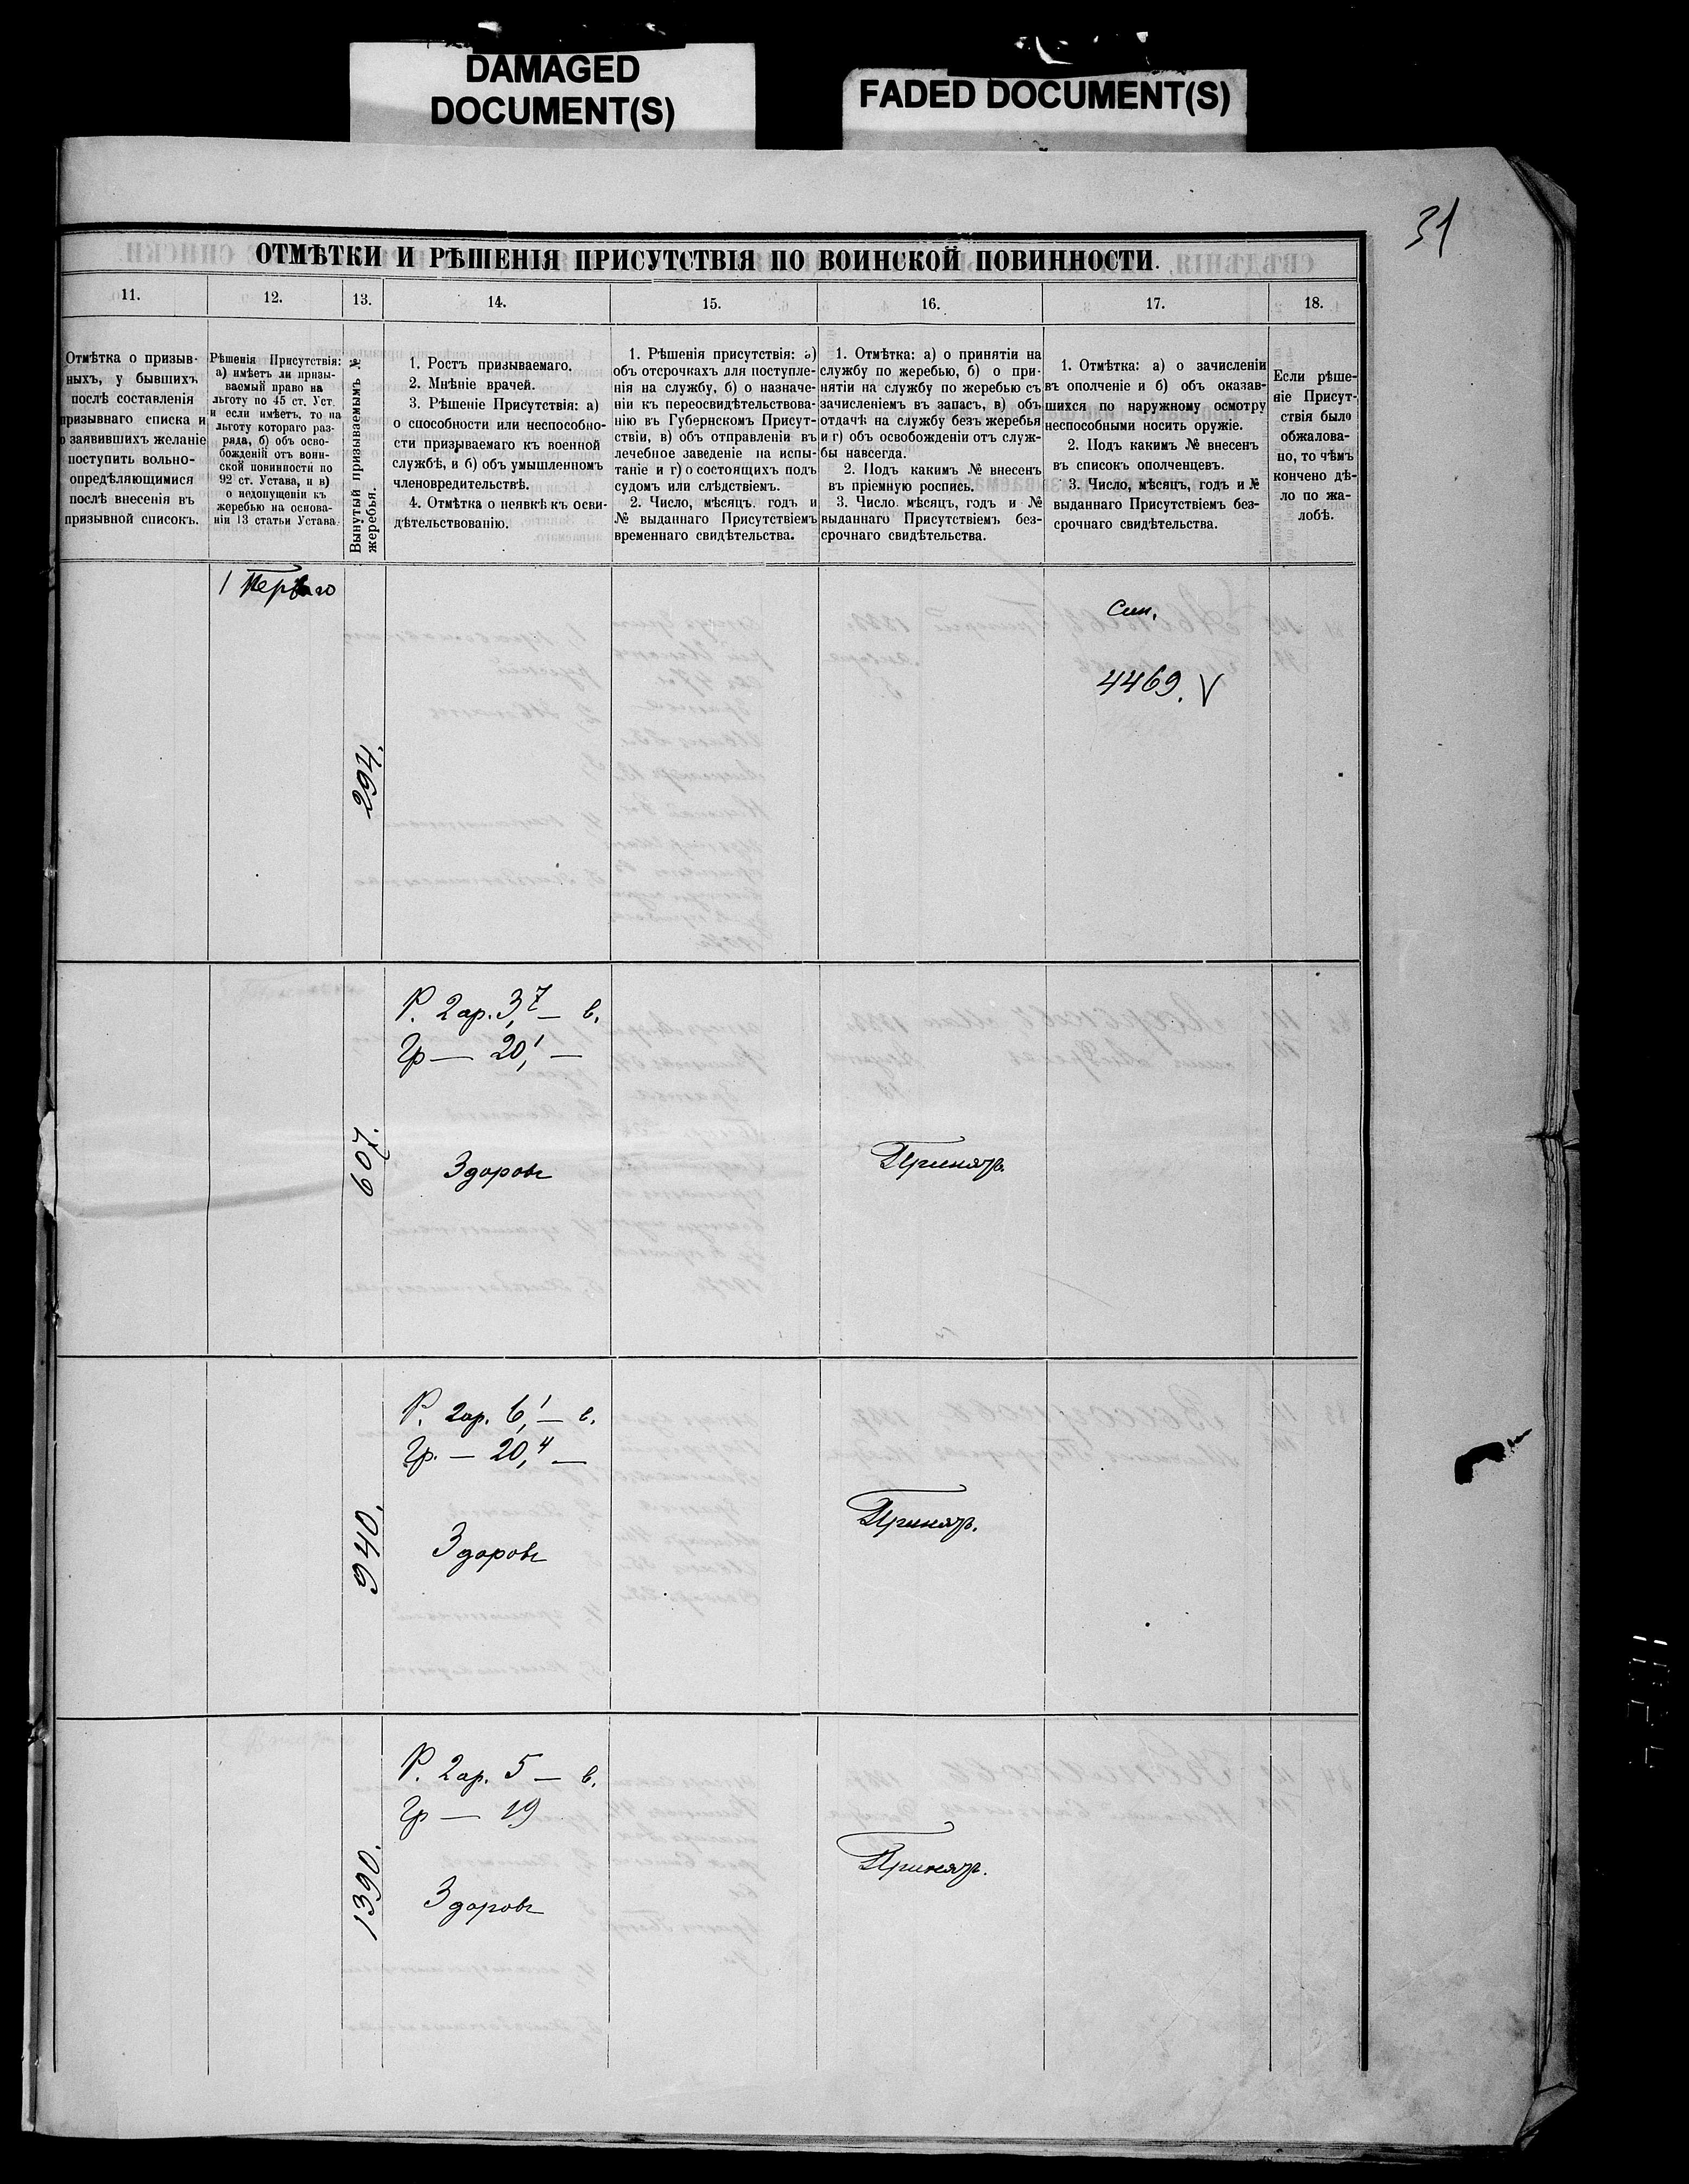 DAMAGED
DOCUMENT(S)
FADED DOCUMENT(S)
31
ОТМѢТКИ И РѢШЕНІЯ ПРИСУТСТВІЯ ПО ВОИНСКОЙ ПОВИННОСТИ.
11.
12.
13.
14.
15.
16.
17.
18.
Отмѣтка о призыв-
ныхъ, у бывшихъ
послѣ составленія
призывнаго списка и
о заявившихъ желаніе
поступить вольно-
опредѣляющимися
послѣ внесенія въ
призывной списокъ.
Рѣшенія Присутствія:
а) имѣетъ ли призы-
ваемый право на
льготу по 45 ст. Уст.
и если имѣетъ, то на
льготу котораго раз-
ряда, б) объ осво-
божденіи отъ воин-
ской повинности по
92 ст. Устава, и в)
о недопущеніи къ
жеребью на основа-
ніи 13 статьи Устава.
Вынутый призываемымъ №
жеребья.
1. Ростъ призываемаго.
2. Мнѣніе врачей.
3. Рѣшеніе Присутствія: а)
о способности или неспособно-
сти призываемаго къ военной
службѣ, и б) объ умышленномъ
членовредительствѣ.
4. Отмѣтка о неявкѣ къ осви-
дѣтельствованію.
1. Рѣшенія присутствія: а)
объ отсрочкахъ для поступле-
нія на службу, б) о назначе-
ніи къ переосвидѣтельствова-
нію въ Губернскомъ Присут-
ствіи, в) объ отправленіи въ
лечебное заведеніе на испы-
таніе и г) о состоящихъ подъ
судомъ или слѣдствіемъ.
2. Число, мѣсяцъ. годъ и
№ выданнаго Присутствіемъ
временнаго свидѣтельства.
1. Отмѣтка: а) о принятіи на
службу по жеребью, б) о при-
нятіи на службу по жеребью съ
зачисленіемъ въ запасъ, в) объ
отдачѣ на службу безъ жеребья
и г) объ освобожденіи отъ служ-
бы навсегда.
2. Подъ какимъ № внесенъ
въ пріемную роспись.
3. Число. мѣсяцъ, годъ и №
выданнаго Присутствіемъ без-
срочнаго свидѣтельства.
1. Отмѣтка: а) о зачисленіи
въ ополченіе и б) объ оказав-
шихся по наружному осмотру
неспособными носить оружіе.
2. Подъ какимъ № внесенъ
въ списокъ ополченцевъ.
3. Число, мѣсяцъ, годъ и №
выданнаго Присутствіемъ без-
срочнаго свидѣтельства.
Если рѣше-
ніе Присут-
ствія было
обжалова-
но, то чѣмъ
кончено дѣ-
ло по жа-
лобѣ.
1 Перваго
294.
4469. V
607.
Р. 2 ар. 3,7 — в.
Гр — 20,1 —
Здоровъ
Принятъ.
940.
Р. 2 ар. 6,1 — в.
Гр. — 20,4 —
Здоровъ
Принятъ.
1390.
Р. 2 ар. 5 — в.
Гр — 19
Здоровъ
Принятъ.